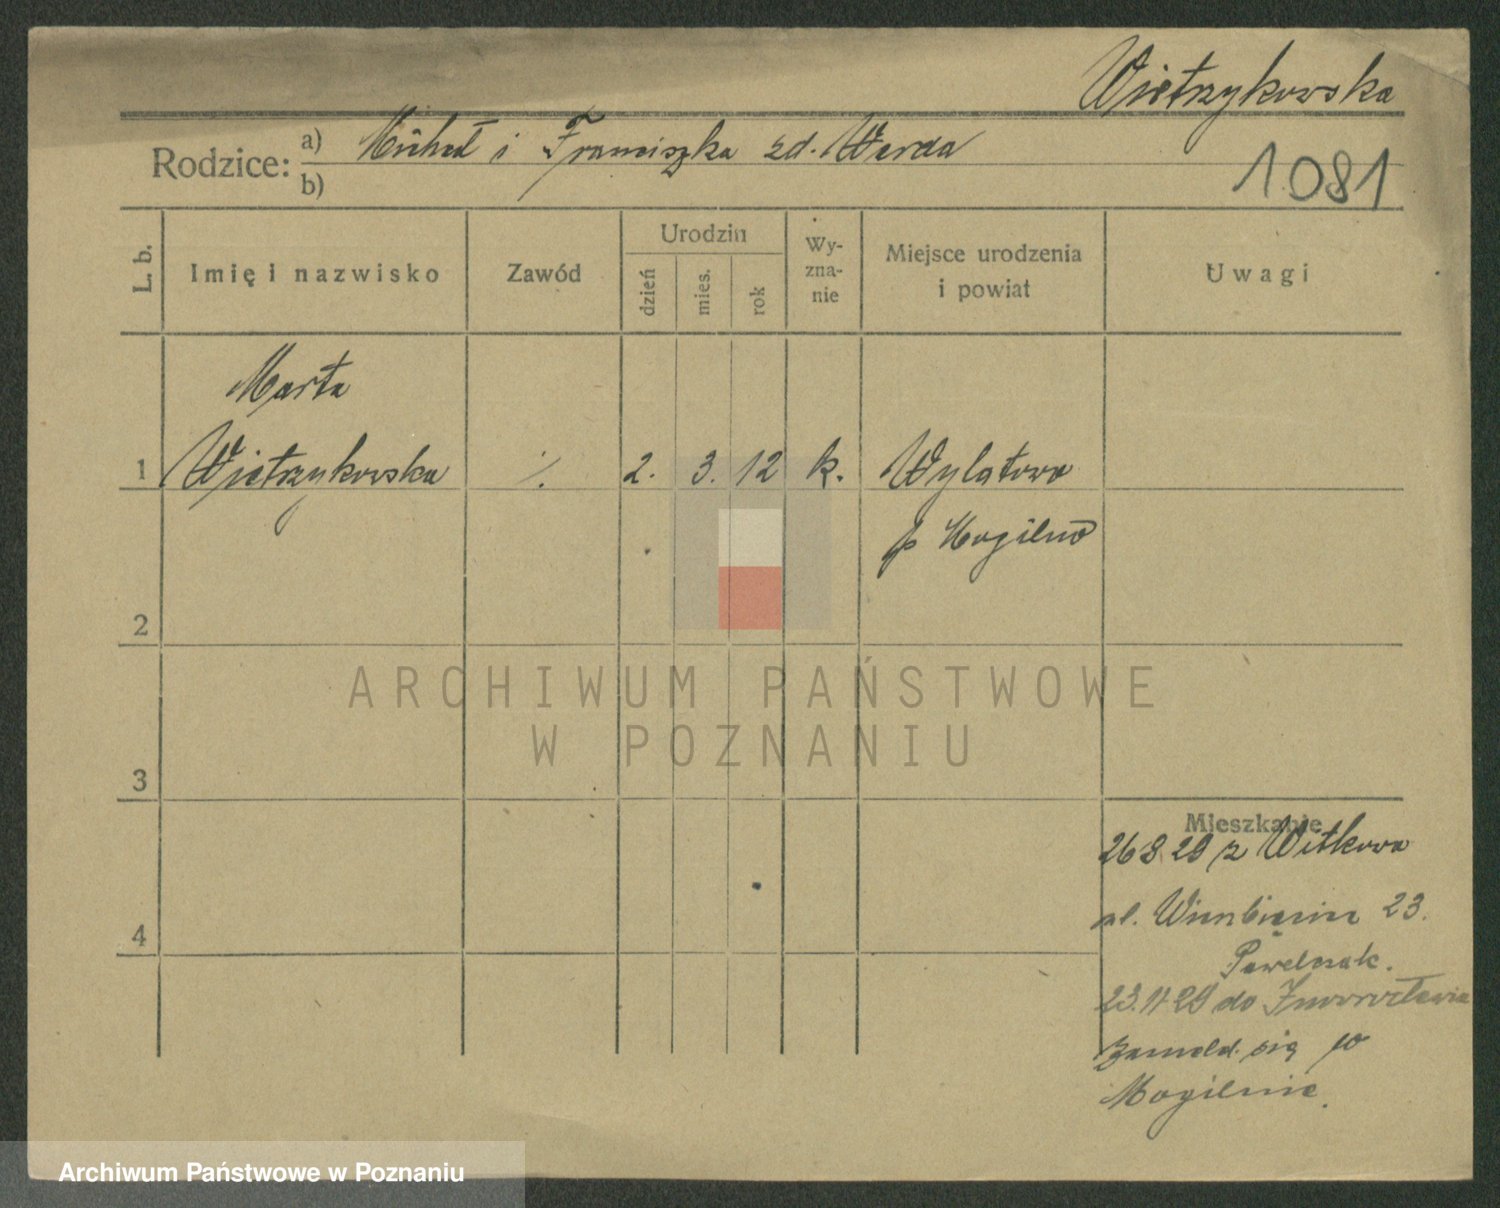 Wietrzykowska
Rodzice: a) Michał i Franciszka zd. Werda
b)
1081
L. b.
Imię i nazwisko
Zawód
Urodzin
dzień
mies.
rok
Wy-
zna-
nie
Miejsce urodzenia
i powiat
Uwagi
Marta
1 Wietrzykowska ./. 2. 3. 12 k. Wylatowo
p Mogilno
2
3
4
Mieszkanie
26 8 29 z Witkowa
ul. 23.
Pawelczak.
23.11 29 do Inowrocławia
zameld. się w
Mogilnie.
ARCHIWUM PAŃSTWOWE
W POZNANIU
Archiwum Państwowe w Poznaniu